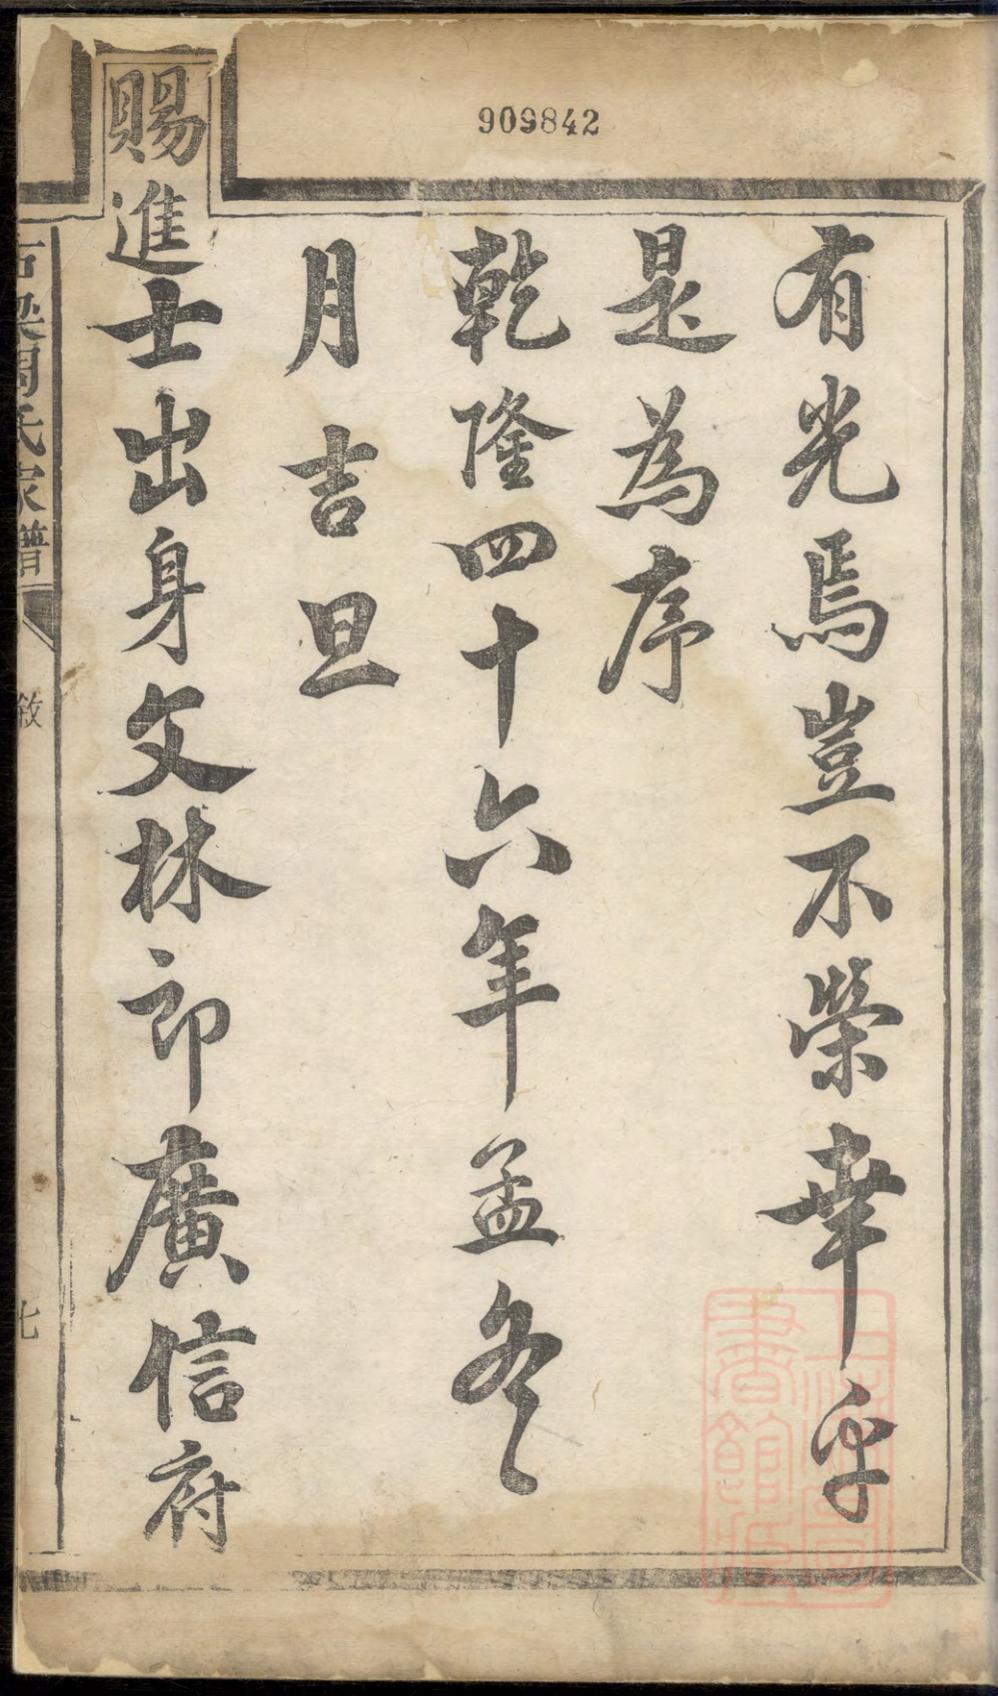 909842
有光焉豈不榮幸乎
是為序
乾隆四十六年孟冬
月吉旦
賜進士出身文林郎廣信府
石梁周氏家譜
敘
七